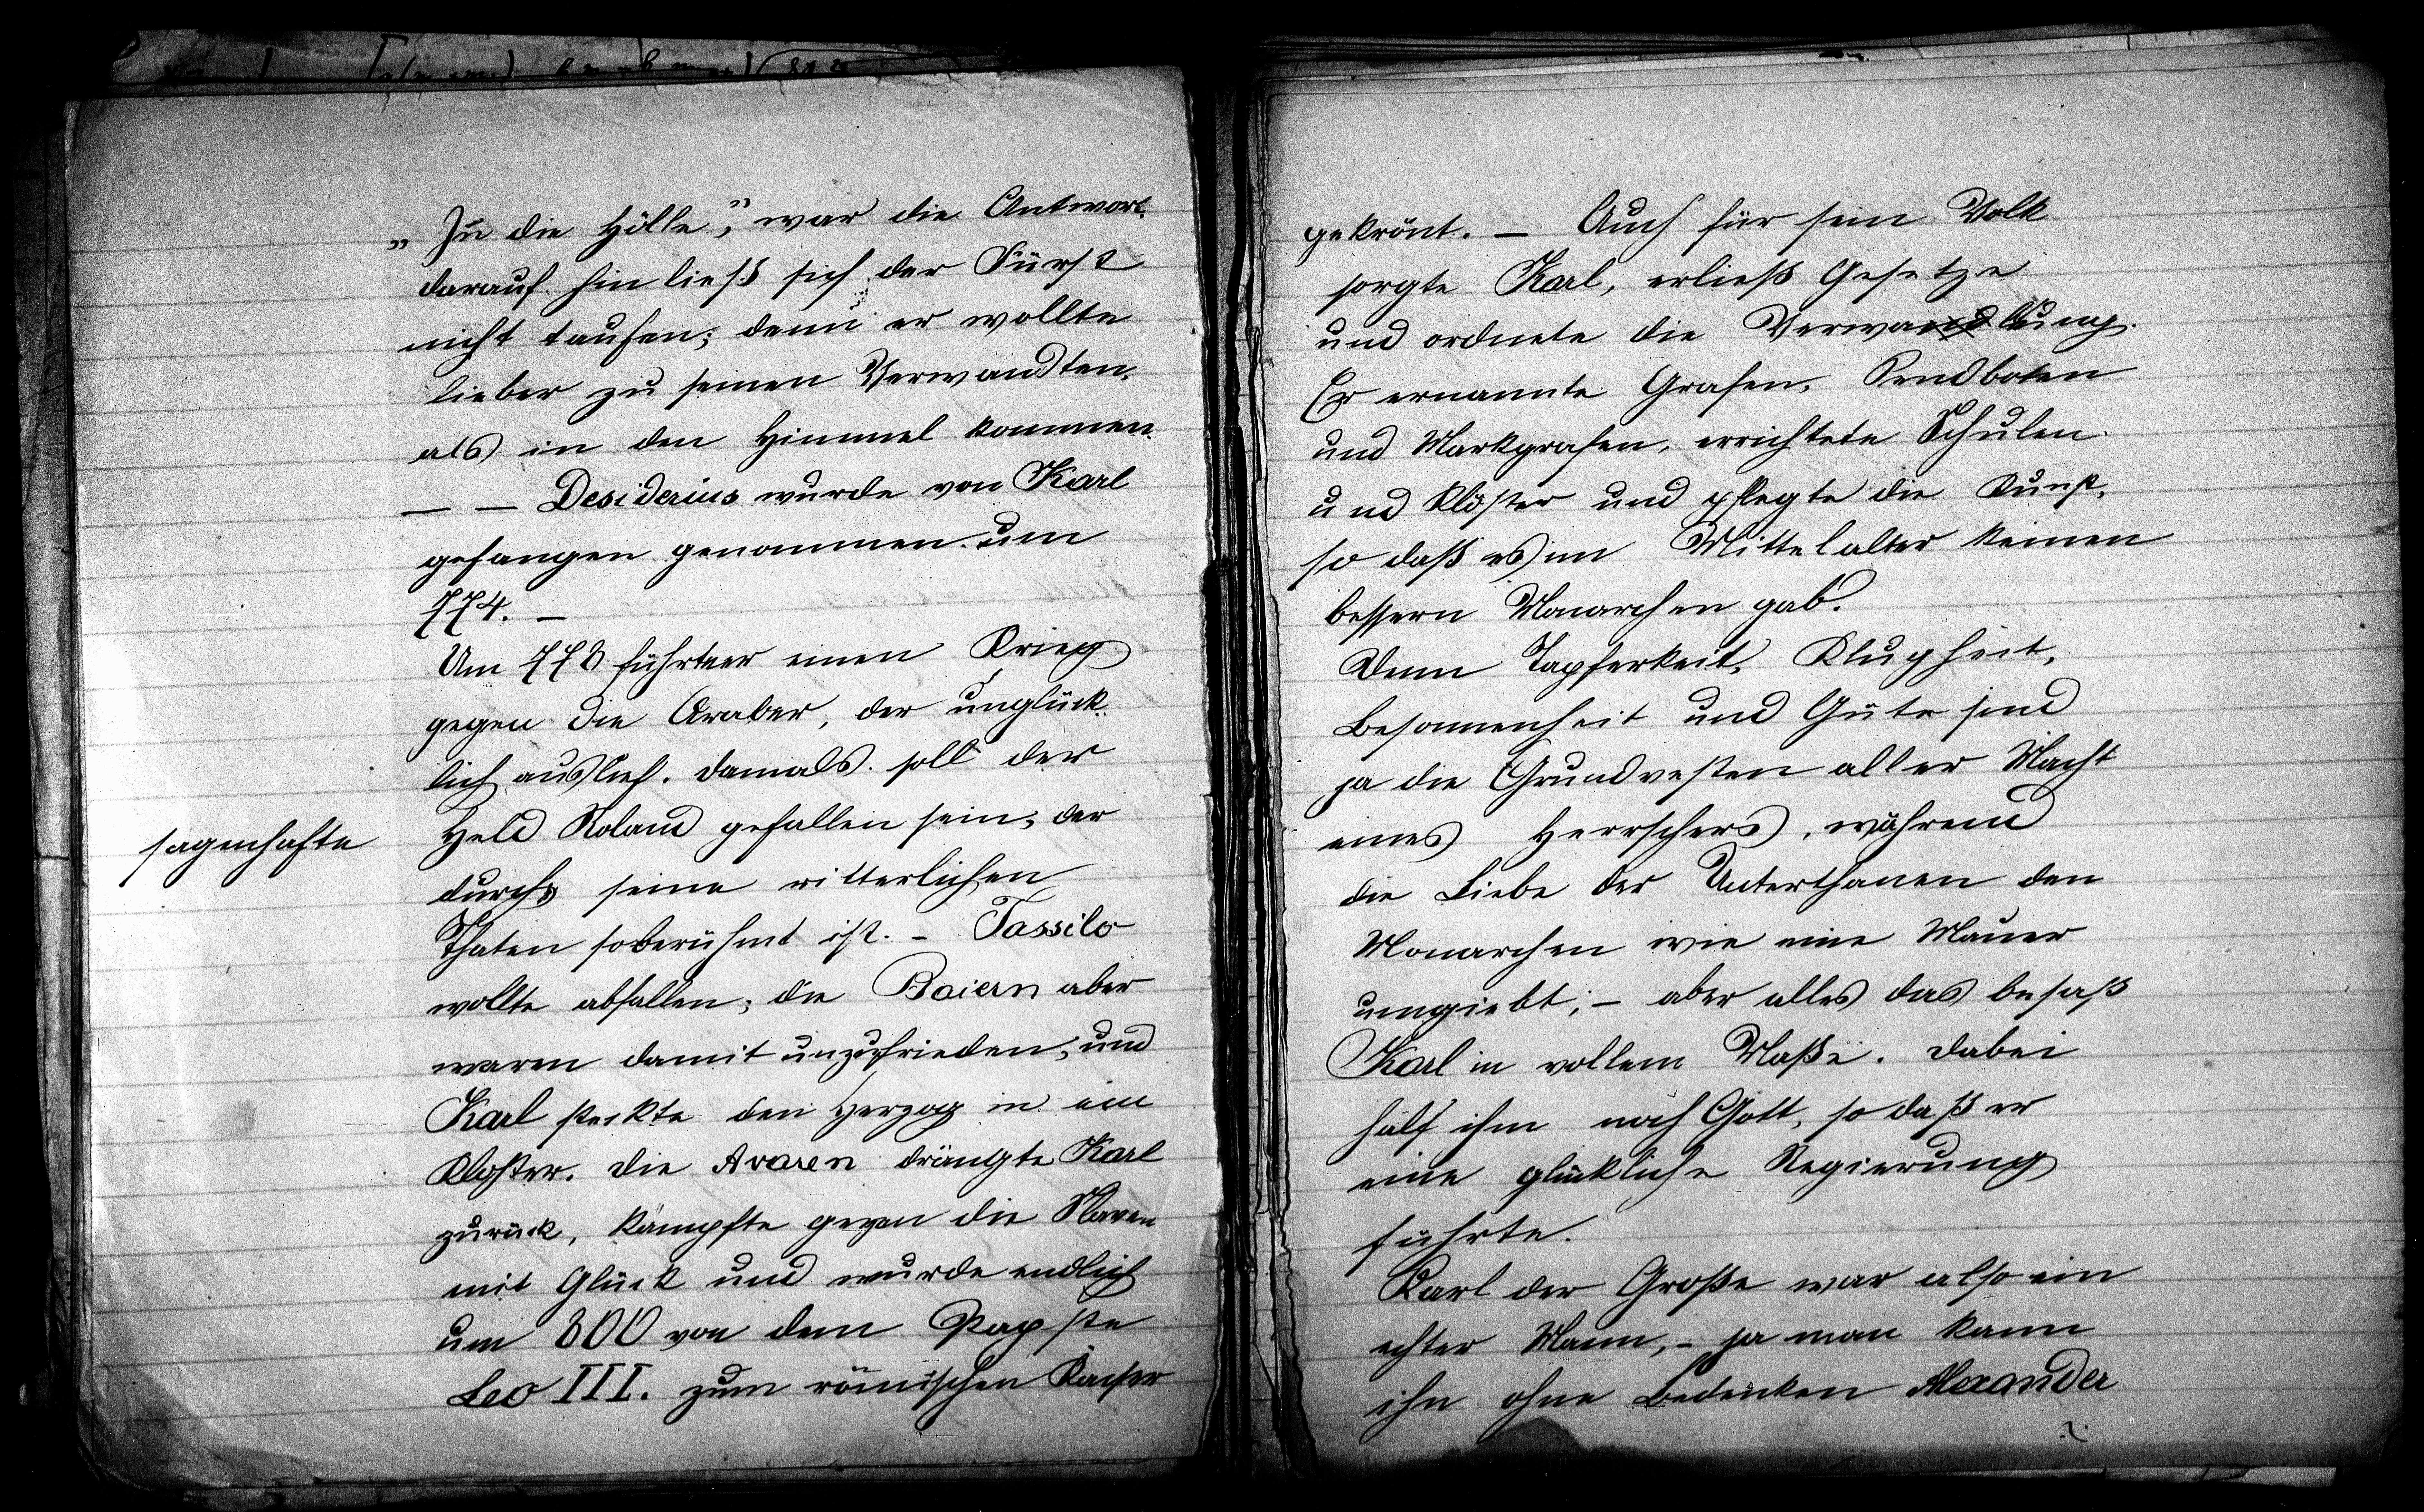 „In die Hölle“, war die Antwort.
darauf hin ließ sich der Fürst
nicht taufen; denn er wollte
lieber zu seinen Verwandten,
als in den Himmel kommen.
— — Desiderius wurde von Karl
gefangen genommen um
774. —
Um 778 führte er einen Krieg
gegen die Araber, der unglück-
lich auslief. Damals soll der
sagenhafte
Held Roland gefallen sein, der
durch seine ritterlichen
Thaten so berühmt ist. – Tassilo
wollte abfallen; die Baiern aber
waren damit unzufrieden, und
Karl steckte den Herzog in ein
Kloster. Die Avaren drängte Karl
zurück, kämpfte gegen die Slaven
mit Glück und wurde endlich
um 800 von dem Papste
Leo III. zum römischen Kaiser
gekrönt. — Auch für sein Volk
sorgte Karl, erließ Gesetze
und ordnete die Verwaltung.
Er ernannte Grafen, Sendboten
und Markgrafen, errichtete Schulen
und Klöster und pflegte die Kunst,
so daß es im Mittelalter keinen
bessern Monarchen gab.
Denn Tapferkeit, Klugheit,
Besonnenheit und Güte sind
ja die Grundvesten aller Macht
eines Herrschers, während
die Liebe der Unterthanen den
Monarchen wie eine Mauer
umgiebt; – aber alles das besaß
Karl in vollem Maße. Dabei
half ihm noch Gott, so daß er
eine glückliche Regierung
führte.
Karl der Große war also ein
echter Mann, – ja man kann
ihn ohne Bedenken Alexander